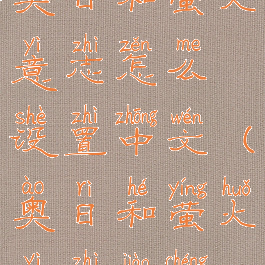 奥日和萤火
yì zhì zěn me
意志怎么
shè zhì zhōng wén
设置中文(
ào rì hé yíng huǒ
奥日和萤火
yì zhì